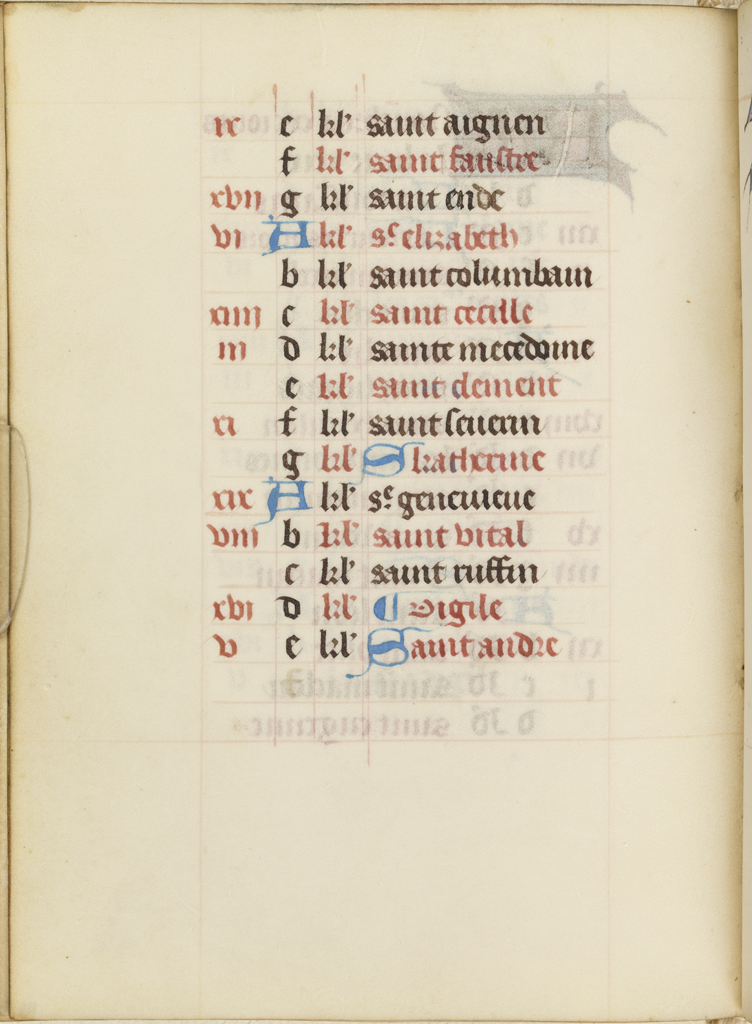 ix e kl' saint aignen
f kl' saint faustre
xvii g kl' saint ende
vi A kl' sᵉ elizabeth
b kl' saint columbain
xiiii c kl' saint cecille
iii d kl' sainte mecedoine
e kl' saint clement
xi f kl' saint seuerin
g kl' S katherine
xix A kl' sᵉ geneuieue
viii b kl' saint vital
c kl' saint ruffin
xvi d kl' Vigile
v e kl' Saint andre